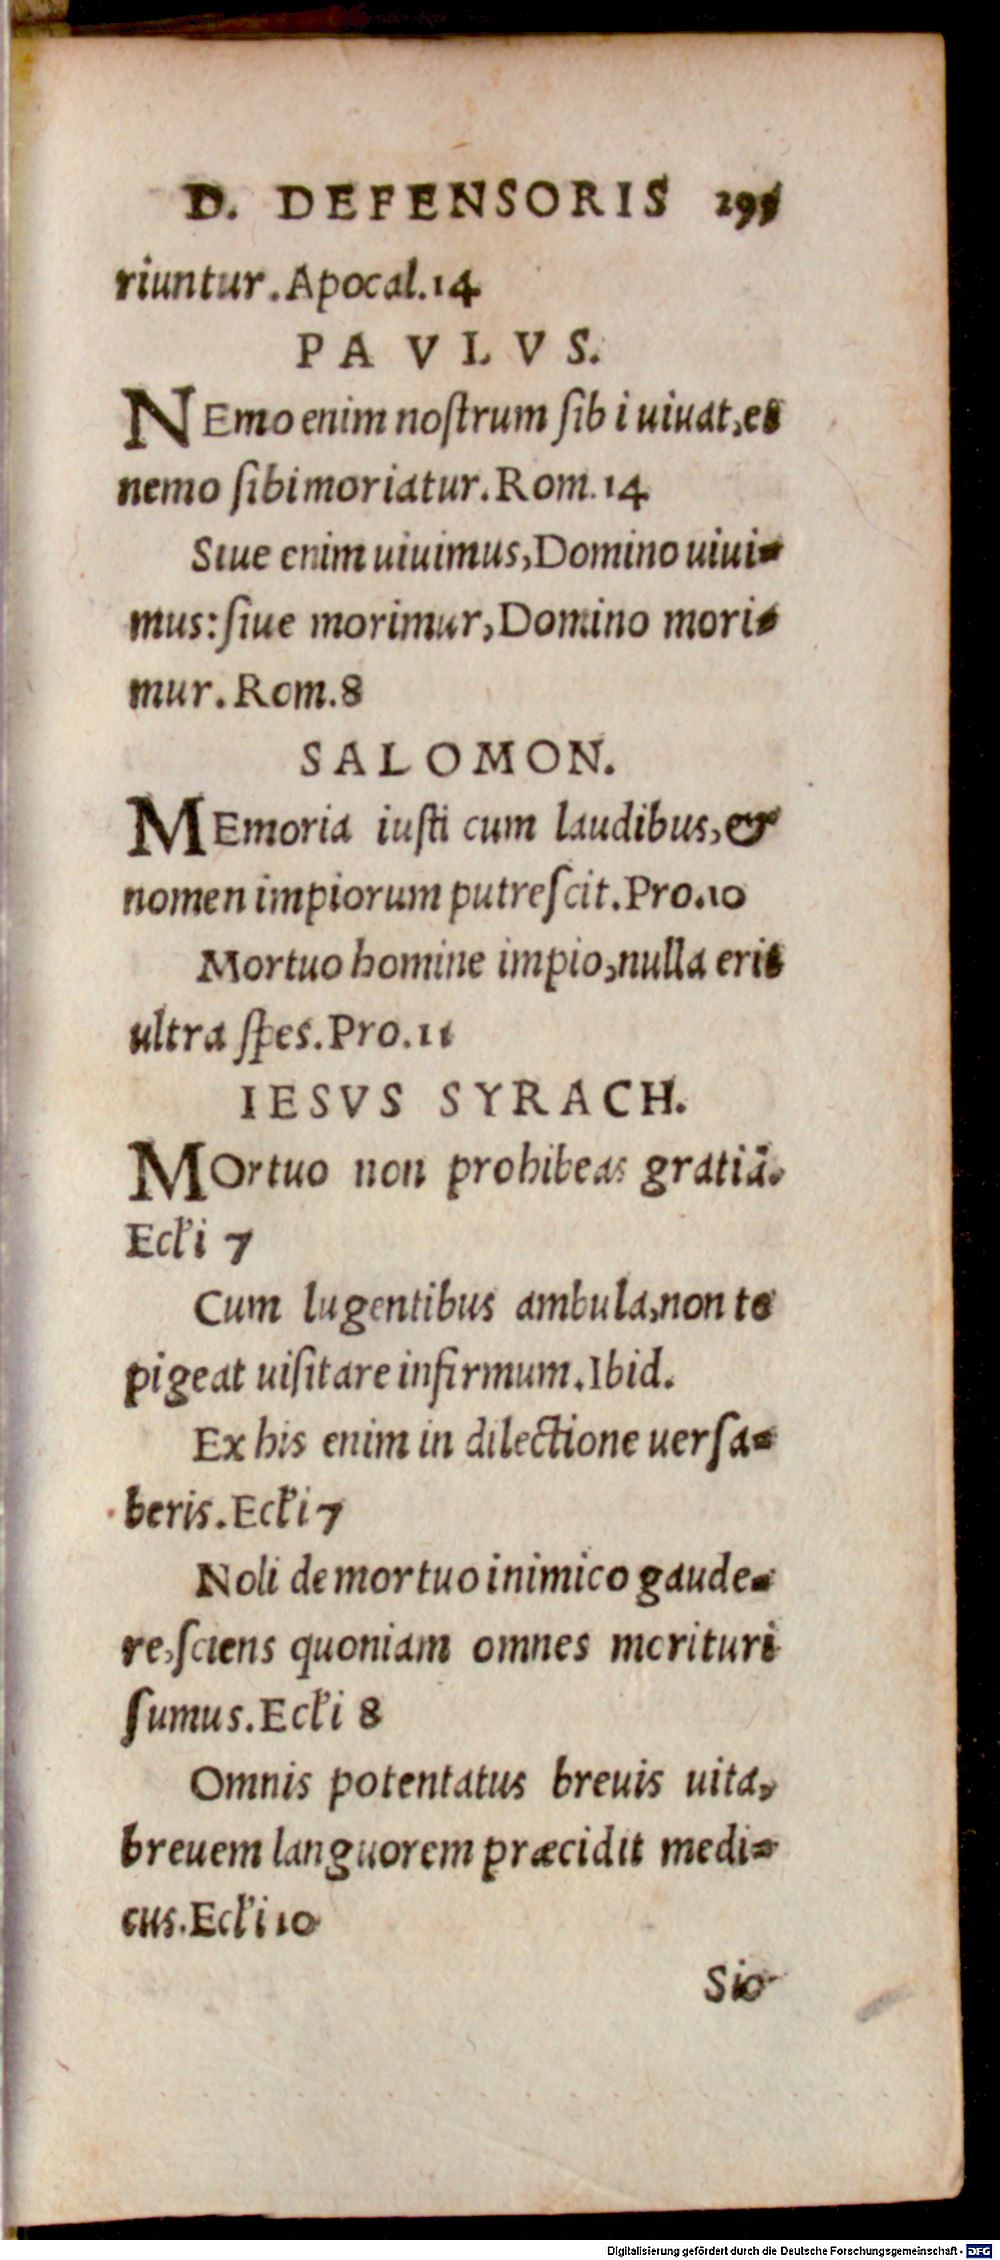 D. DEFENSORIS 295
riuntur. Apocal. 14
PAVLVS.
NEmo enim nostrum sibi uiuat, et
nemo sibi moriatur. Rom. 14
Siue enim uiuimus, Domino uiui-
mus: siue morimur, Domino mori-
mur. Rom. 8
SALOMON.
MEmoria iusti cum laudibus, &
nomen impiorum putrescit. Pro. 10
Mortuo homine impio, nulla erit
ultra spes. Pro. 11
IESVS SYRACH.
MOrtuo non prohibeas gratiā.
Eccłi 7
Cum lugentibus ambula, non te
pigeat uisitare infirmum. Ibid.
Ex his enim in dilectione uersa-
beris. Ecłi 7
Noli de mortuo inimico gaude-
re, sciens quoniam omnes morituri
sumus. Ecłi 8
Omnis potentatus breuis uita,
breuem languorem præcidit medi-
cus. Ecłi 10
Sic
Digitalisierung gefördert durch die Deutsche Forschungsgemeinschaft - DFG